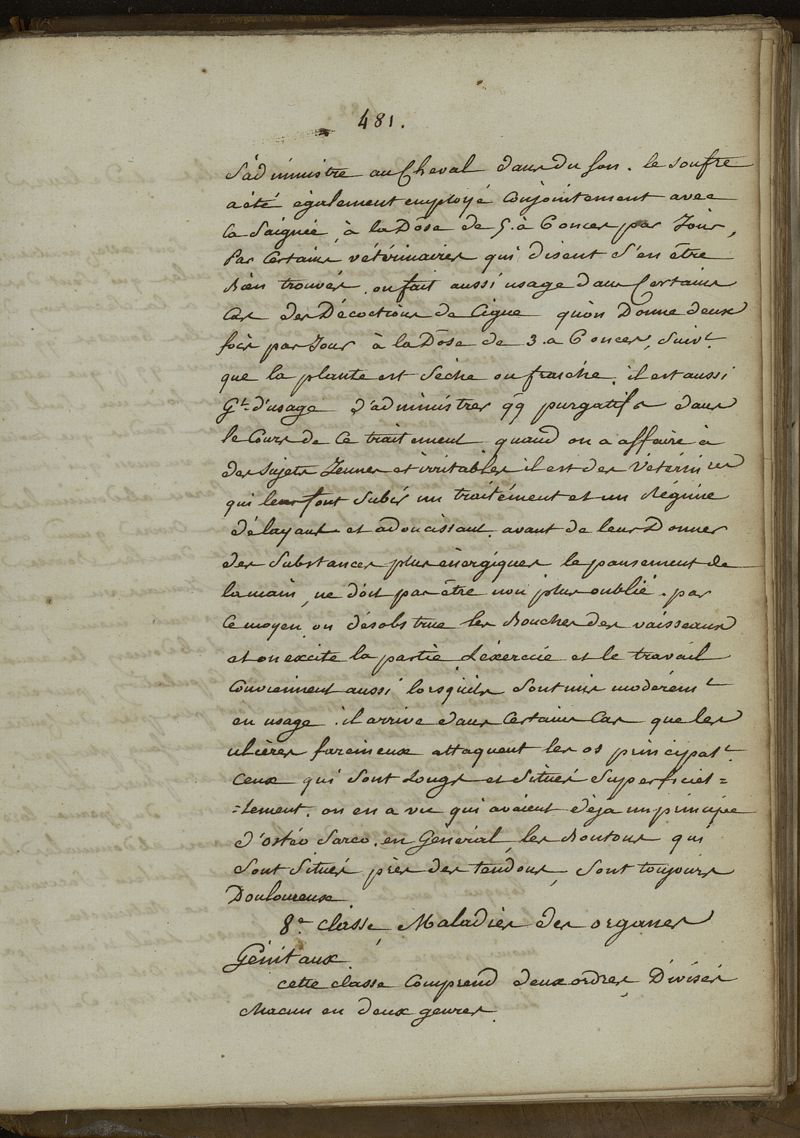 481.
s'administre au Cheval dans du son. le soufre
a été également employé Conjointement avec
la Saignée, à la Dôse de 5. à 6 onces par Jour,
par Certains vétérinaires qui disent s'en être
bien trouvés. on fait aussi usage dans Certains
Cas des Décoctions de Cigue qu'on Donne deux
fois par Jour à la Dôse de 3. a 6 onces, Suivt.
que la plante est Séche ou fraiche. il est aussi
Gt. d'usage d'administrer qq purgatifs dans
le Cours de Ce traitement quand on a affaire à
des Sujets Jeunes et irritables il est des Vétérinres
qui leur font Subir un traitément et un Régime
délayant et adoucissant. avant de leur Donner
des Substances plus énergiques le pansement de
la main, ne doit pas être non plus oublié. par
Ce moyen on désobstrue les Bouches des vaisseaux
et on excite la partie L'exercice et le travail
Conviennent aussi lorsqu'ils sont mis modérémt
en usage. il arrive dans Certains Cas que les
ulcéres farcineux attaquent les os principalt.
Ceux qui sont Longs et Situés Superficiel=
=lement. on en a vu qui avaient déja un principe
d'ostéo Sarco. en Général les Boutons qui
sont Situés près des tendons, sont toujours
Douloureux
8e classe, Maladies des organes
Génitaux.
cette classe Comprend deux ordres Divisés
chacun en deux genres.